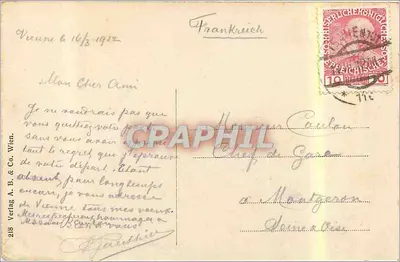 Vienne le 16/3 1912
Frankreich
Mon Cher Ami
Je ne voudrais pas que
vous quittiez votre
sans vous avoir
tout le regret que j'éprouve
de votre départ. étant
absent pour longtemps
encore, je vous adresse
de Vienne tous mes voeux.
Mes respectueux hommages à
Madame
à vous
Gauthier
Monsieur Coulon
Chef de Gare
à Montgeron
Seine & Oise
218 Verlag A. B. & Co. Wien.
10
CPAPHIL